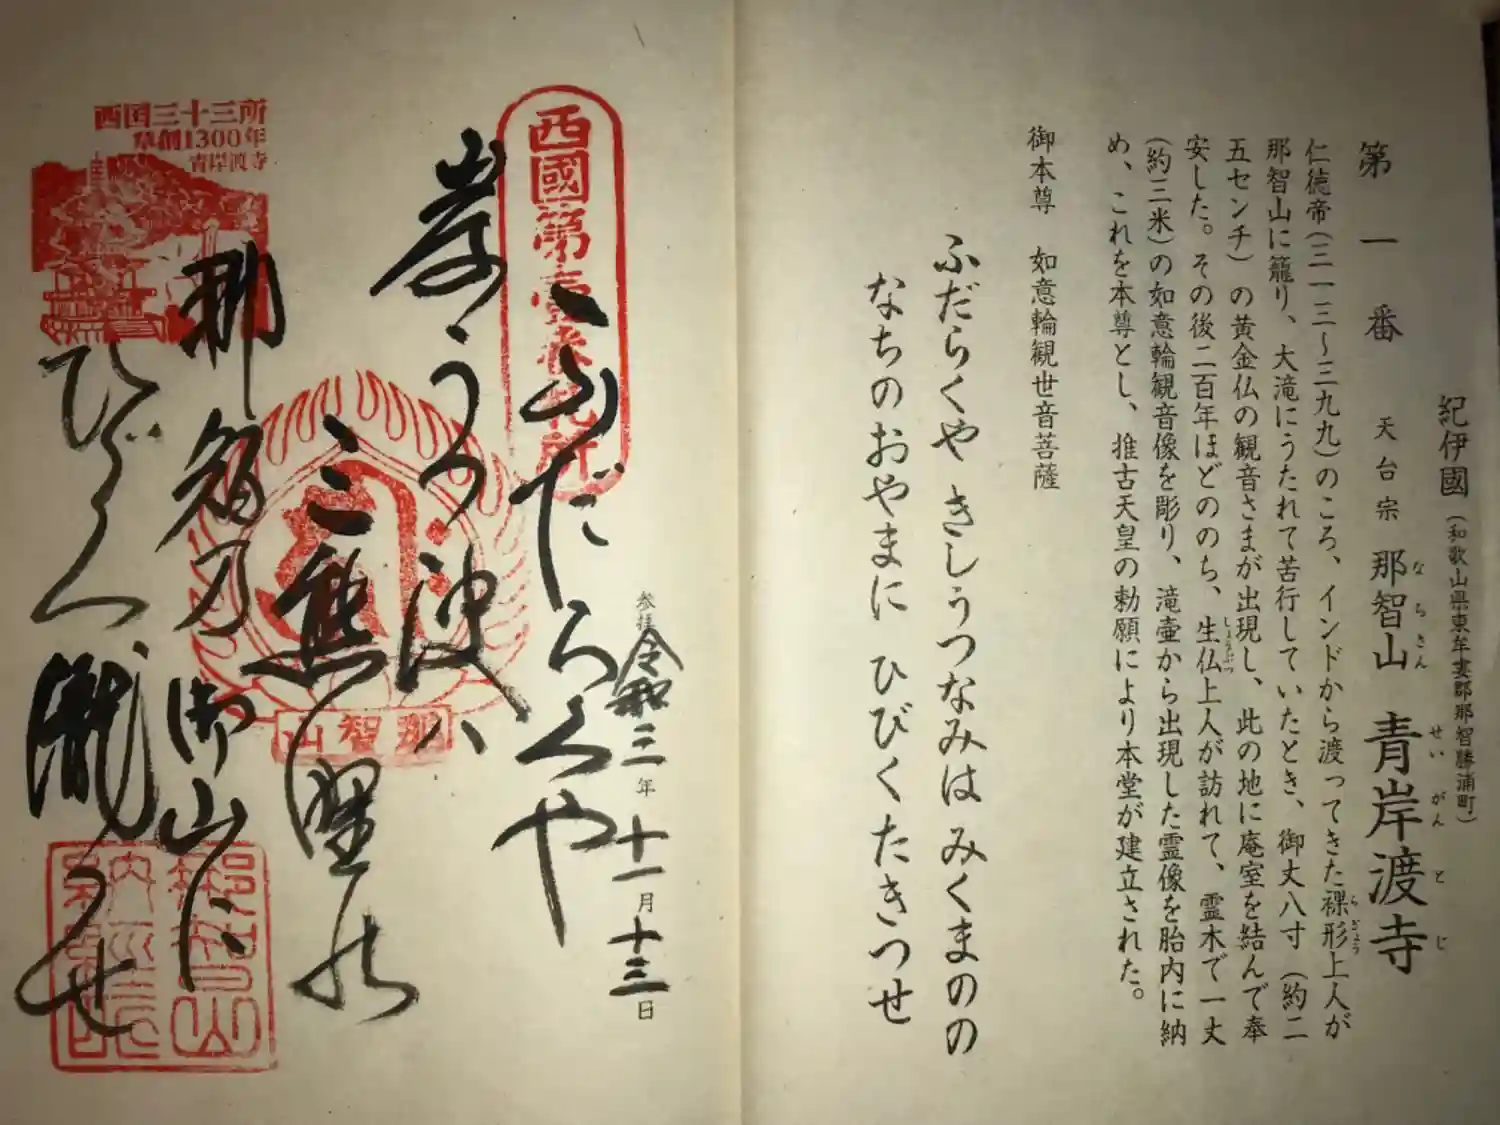 紀伊國（和歌山県東牟婁郡那智勝浦町）
第一番 天台宗 那智山 青岸渡寺
なちさん せいがんとじ
仁徳帝（三一三〜三九九）のころ、インドから渡ってきた裸形上人が
らぎょう
那智山に籠り、大滝にうたれて苦行していたとき、御丈八寸（約二
五センチ）の黄金仏の観音さまが出現し、此の地に庵室を結んで奉
安した。その後二百年ほどのち、生仏上人が訪れて、霊木で一丈
しょうぶつ
（約三米）の如意輪観音像を彫り、滝壺から出現した霊像を胎内に納
め、これを本尊とし、推古天皇の勅願により本堂が建立された。
御本尊 如意輪観世音菩薩
ふだらくや きしうつなみは みくまのの
なちのおやまに ひびくたきつせ
参拝 令和三年十一月十三日
西國第壹番札所
ふだらくや
岸うつ波ハ
三熊野の
那智乃御山に
ひびく瀧つせ
西国三十三所
草創1300年
青岸渡寺
那智山